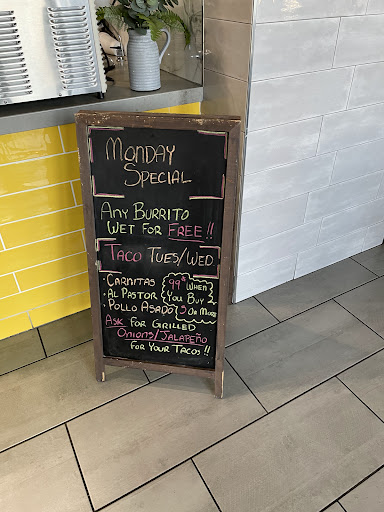 Monday
Special
Any Burrito
Wet For FREE!!
Taco Tues/Wed
-Carnitas
-Al Pastor
-Pollo Asado
99¢ When
You Buy
3 or More
Ask For Grilled
Onions/Jalapeño
For Your Tacos!!